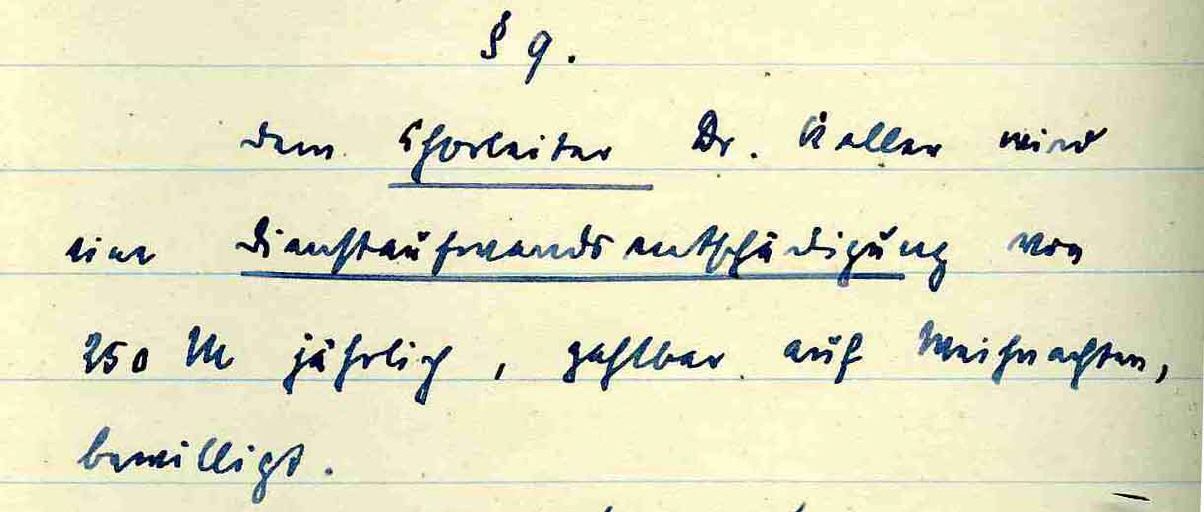 § 9.
Dem Chorleiter Dr. Keller wird
eine Dienstaufwandsentschädigung von
250 M jährlich, zahlbar auf Weihnachten,
bewilligt.